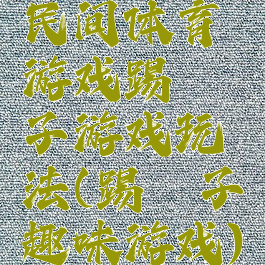 民间体育
游戏踢
子游戏玩
法(踢 子
趣味游戏)